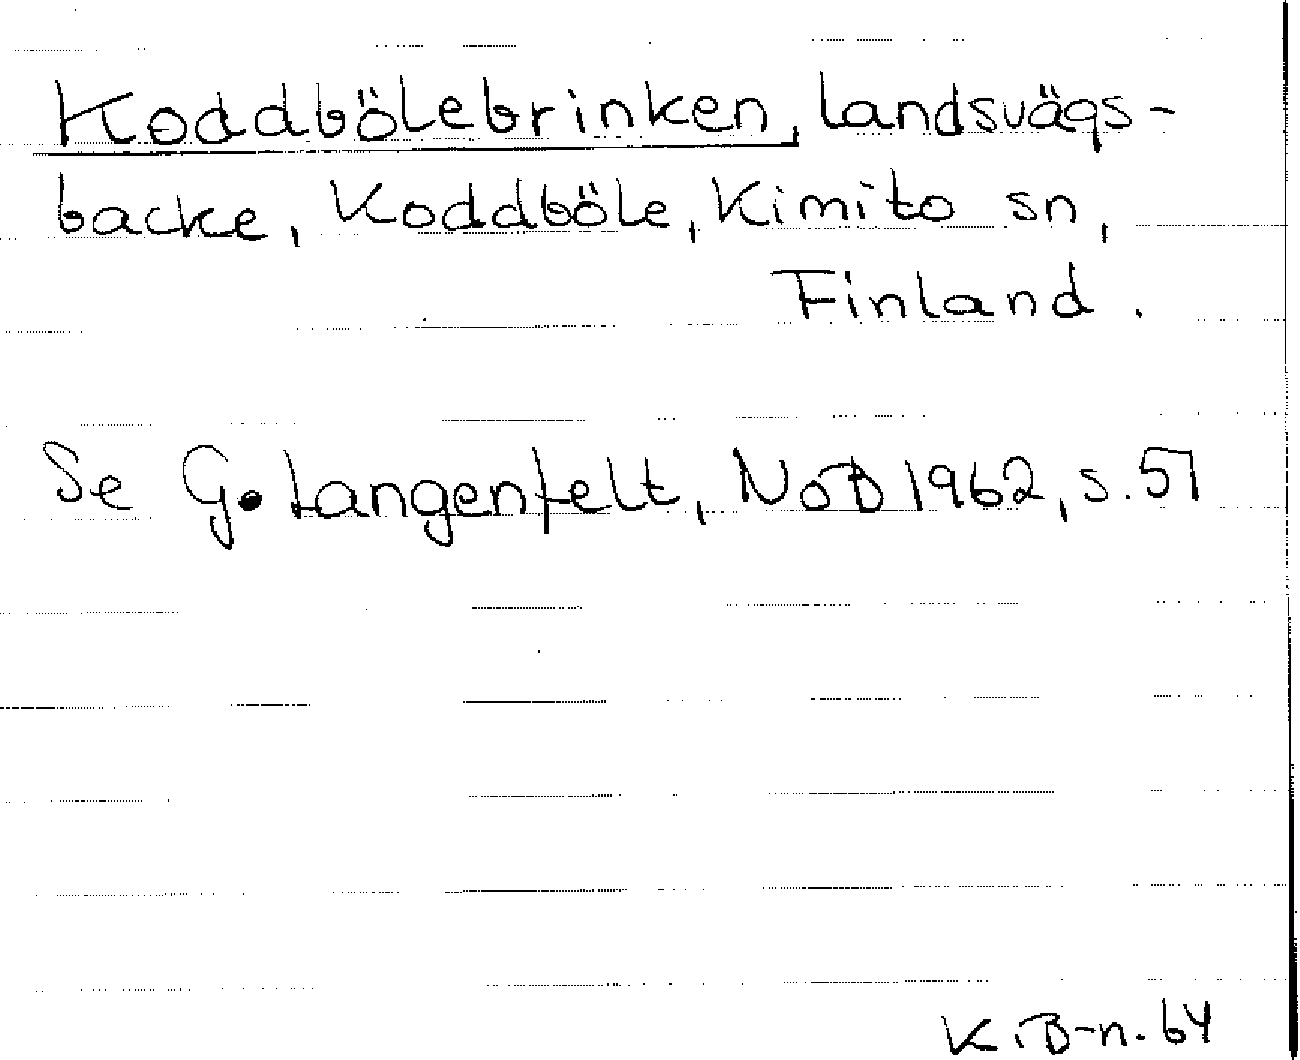 Koddbölebrinken, landsvägs-
backe, Koddböle, Kimito sn,
Finland.
Se G. Langenfelt, NoB 1962, s. 51
K.B-n. 64